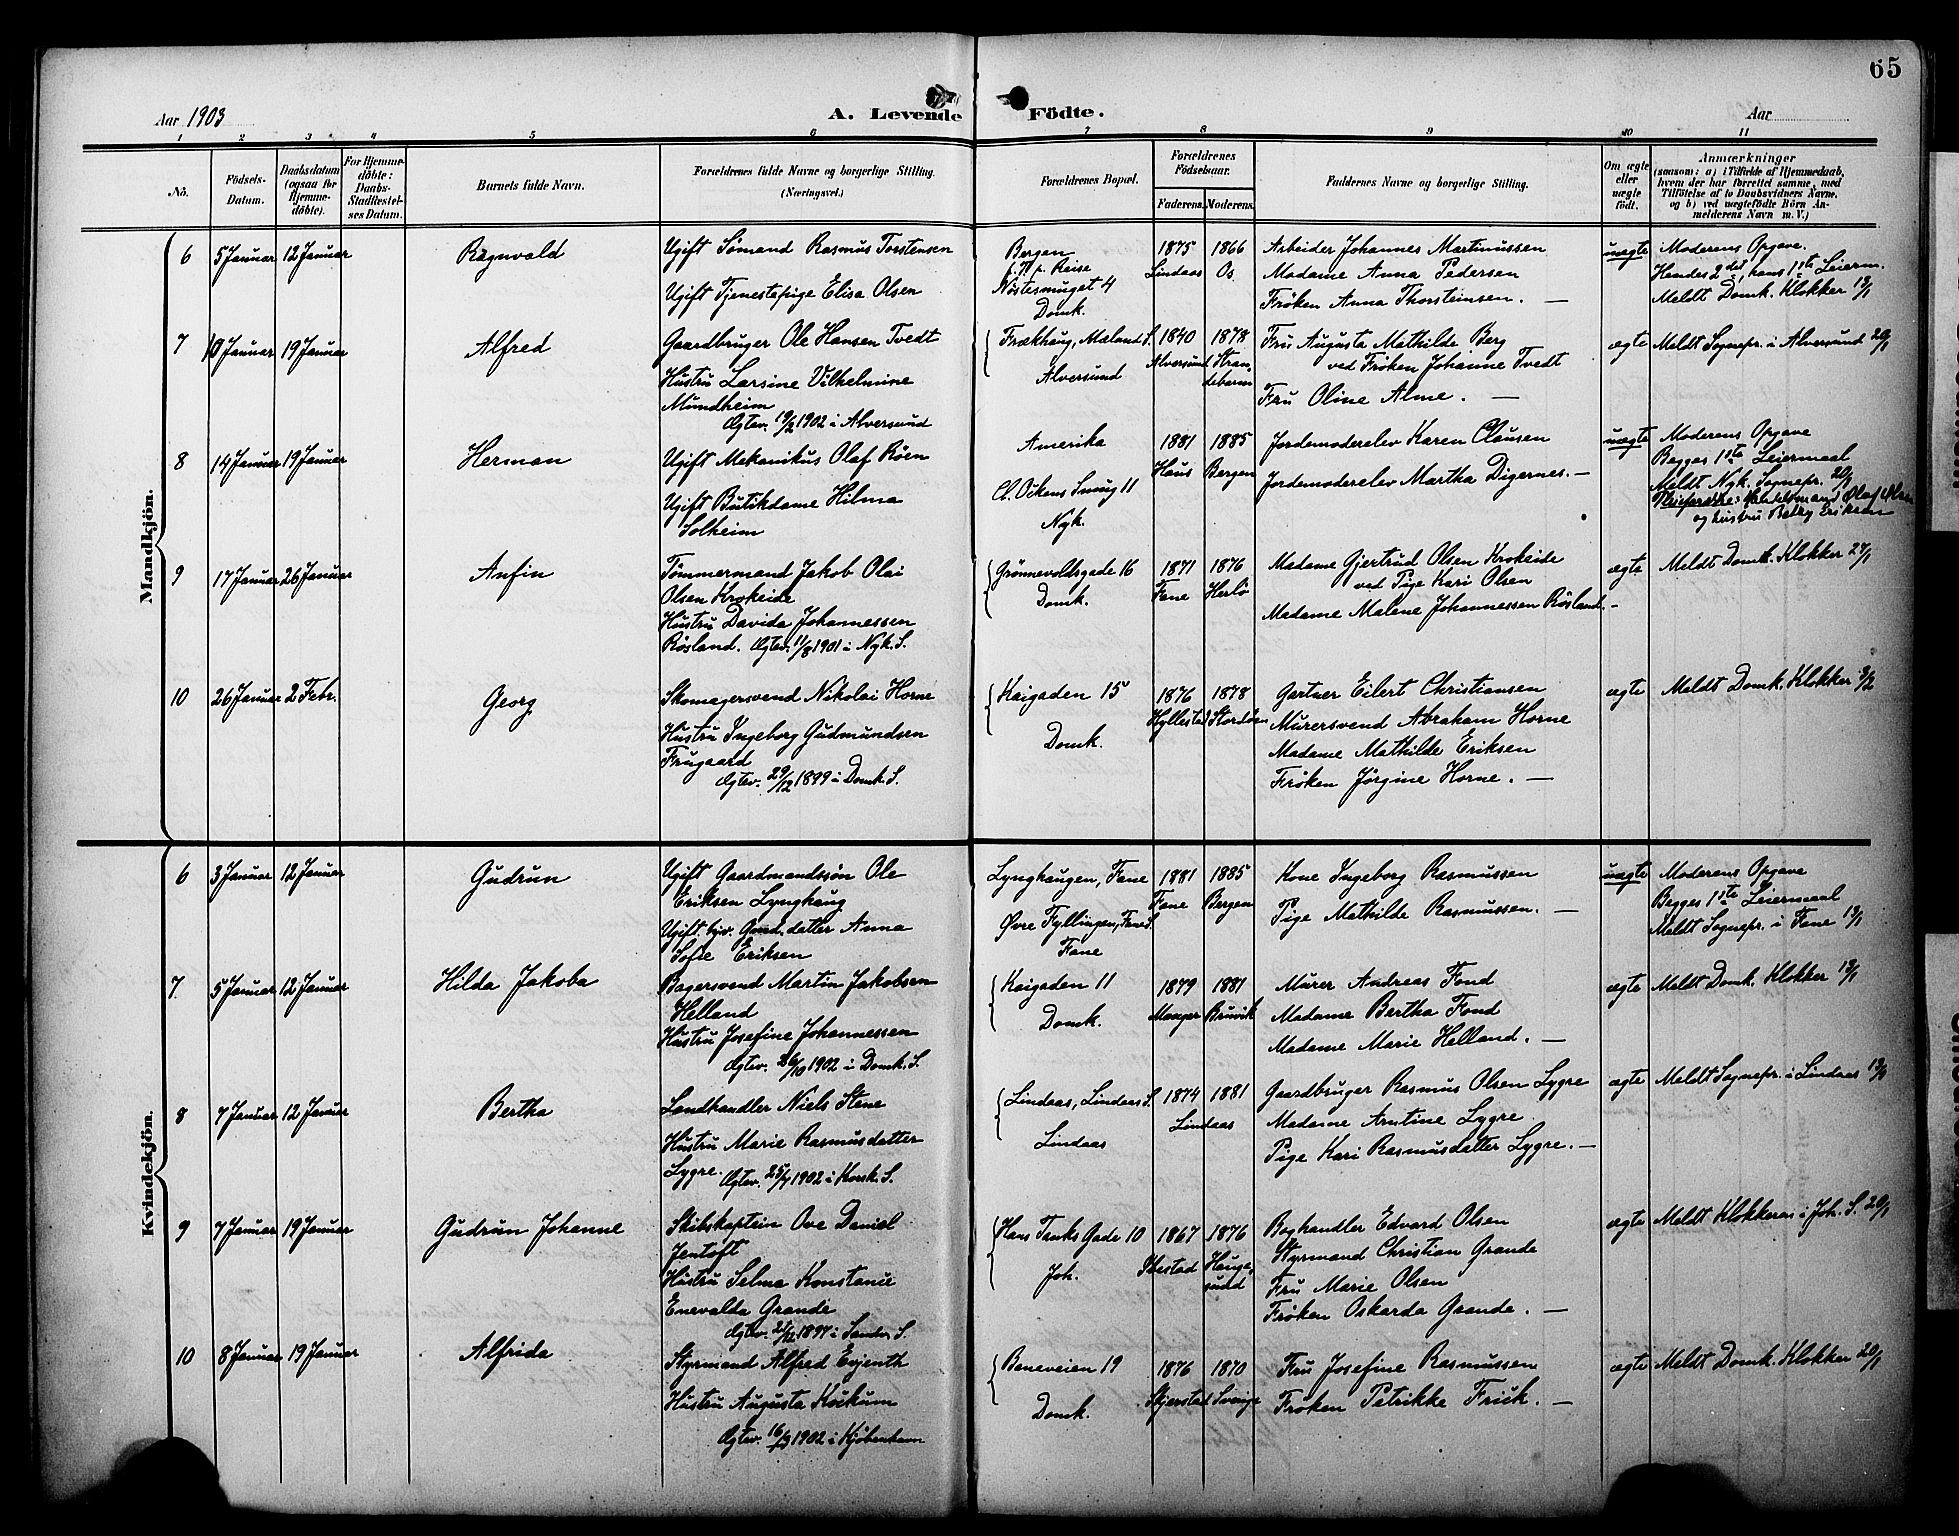 65
Aar 1903
A. Levende Födte.
Aar
1 2 3 4 5 6 7 8 9 10 11
No.
Födsels-
Datum.
Daabsdatum
(ogsaa for
hjemme-
döbte).
For Hjemme-
döbte:
Daabs-
Stadfæstel-
ses Datum.
Barnets fulde Navn.
Forældrenes fulde Navne og borgerlige Stilling.
(Næringsvei.)
Forældrenes Bopæl.
Forældrenes
Födselsaar.
Faderens. Moderens.
Faddernes Navne og borgerlige Stilling.
Om ægte
eller
uægte
født.
Anmærkninger
(saasom: a) i Tilfælde af Hjemmedaab,
hvem der har forrettet samme, med
Tilföielse af to Daabsvidners Navne,
og b) ved uægtefödte Börn An-
melderens Navn m. V.)
Mandkjön.
6 5 Januar 12 Januar Ragnvald
Ugift Sømand Rasmus Torstensen
Ugift Tjenestepige Elisa Olsen
Bergen
p. T. p. Reise
Nøstesmuget 4
Domk.
1875 1866
Lindaas Os
Arbeider Johannes Martinussen
Madame Anna Pedersen
Frøken Anna Thorsteinsen. —
uægte
Moderens Opgave.
Hendes 2det, hans 1ste Leierm.
Meldt Domk. Klokker 13/1
7 10 Januar 19 Januar Alfred
Gaardbruger Ole Hansen Tvedt
Hustru Larsine Vilhelmine
Mundheim
Ægtev. 19/2 1902 i Alversund
Frækhaug, Meland S.
Alversund
1840 1878
Alversund Stran-
debarm
Fru Augusta Mathilde Berg
ved Frøken Johanne Tvedt
Fru Oline Alme. —
ægte
Meldt Sognepr. i Alversund 20/1
8 14 Januar 19 Januar Herman
Ugift Mekanikus Olaf Røen
Ugift Butikdame Hilma
Solheim
Amerika
Cl. Ockens Smug 11
Nyk.
1881 1885
Haus Bergen
Jordemoderelev Karen Clausen
Jordemoderelev Martha Digernes. —
uægte
Moderens Opgave
Begges 1ste Leiermaal
Meldt Nyk. Sognepr. 20/1
og hustru Betzy Eriksen
9 17 Januar 26 Januar Anfin
Tømmermand Jakob Olai
Olsen Krokeide
Hustru Davida Johannessen
Røsland. Ægtev. 11/8 1901 i Nyk. S.
Grønnevoldsgade 16
Domk.
1871 1876
Fane Herlø
Madame Gjertrud Olsen Krokeide
ved Pige Kari Olsen
Madame Malene Johannessen Røsland. -
ægte
Meldt Domk. Klokker 27/1
10 26 Januar 2 Febr. Georg
Skomagersvend Nikolai Horne
Hustru Ingeborg Gudmundsen
Frugaard
Ægtev. 29/12 1899 i Domk. S.
Kaigaden 15
Domk.
1876 1878
Hyllestad Stordøen
Gartner Eilert Christiansen
Murersvend Abraham Horne
Madame Mathilde Eriksen
Frøken Jørgine Horne. —
ægte
Meldt Domk. Klokker 3/2
Kvindekjön.
6 3 Januar 12 Januar Gudrun
Ugift Gaardmandssøn Ole
Eriksen Lynghaug
Ugift. hjv. Gmd. datter Anna
Sofie Eriksen
Lynghaugen, Fane
Øvre Fyllingen, Fane S.
Fane
1881 1885
Fane Bergen
Kone Ingeborg Rasmussen
Pige Mathilde Rasmussen. —
uægte
Moderens Opgave
Begges 1ste Leiermaal
Meldt Sognepr. i Fane 13/1
7. 5 Januar 12 Januar Hilda Jakoba
Bagersvend Martin Jakobsen
Helland
Hustru Josefine Johannessen
Ægtev. 26/10 1902 i Domk. S.
Kaigaden 11
Domk.
1879 1881
Manger Bruvik
Murer Andreas Fond
Madame Bertha Fond
Madame Marie Helland. —
ægte
Meldt Domk. Klokker 13/1
8 7 Januar 12 Januar Bertha
Landhandler Niels Stene
Hustru Marie Rasmusdatter
Lygre. Ægtev. 25/4 1902 i Korsk. S.
Lindaas, Lindaas S.
Lindaas
1874 1881
Lindaas
Gaardbruger Rasmus Olsen Lygre
Madame Arntine Lygre
Pige Kari Rasmusdatter Lygre. —
ægte
Meldt Sognepr. i Lindaas 13/1
9 7 Januar 19 Januar Gudrun Johanne
Skibskaptein Ove Daniel
Jentoft
Hustru Selma Konstance
Enevalda Grande
Ægtev. 21/12 1897 i Sandv. S.
Hans Tanks Gade 10
Joh.
1867 1876
Ibestad Hauge-
sund
Boghandler Edvard Olsen
Styrmand Christian Grande
Fru Marie Olsen
Frøken Oskarda Grande. —
ægte
Meldt Klokkeren i Joh. S. 20/1
10 8 Januar 19 Januar Alfrida
Styrmand Alfred Evjenth
Hustru Augusta Kockum
Ægtev. 16/9 1902 i Kjøbenhavn
Baneveien 19
Domk.
1876 1870
Skjerstad Sverige
Fru Josefine Rasmussen
Frøken Petrikke Frick. —
ægte
Meldt Domk. Klokker 20/1